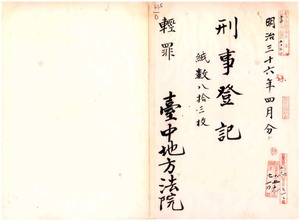 明治三十六年四月分
刑事登記
紙數八拾三枚
輕罪
臺中地方法院